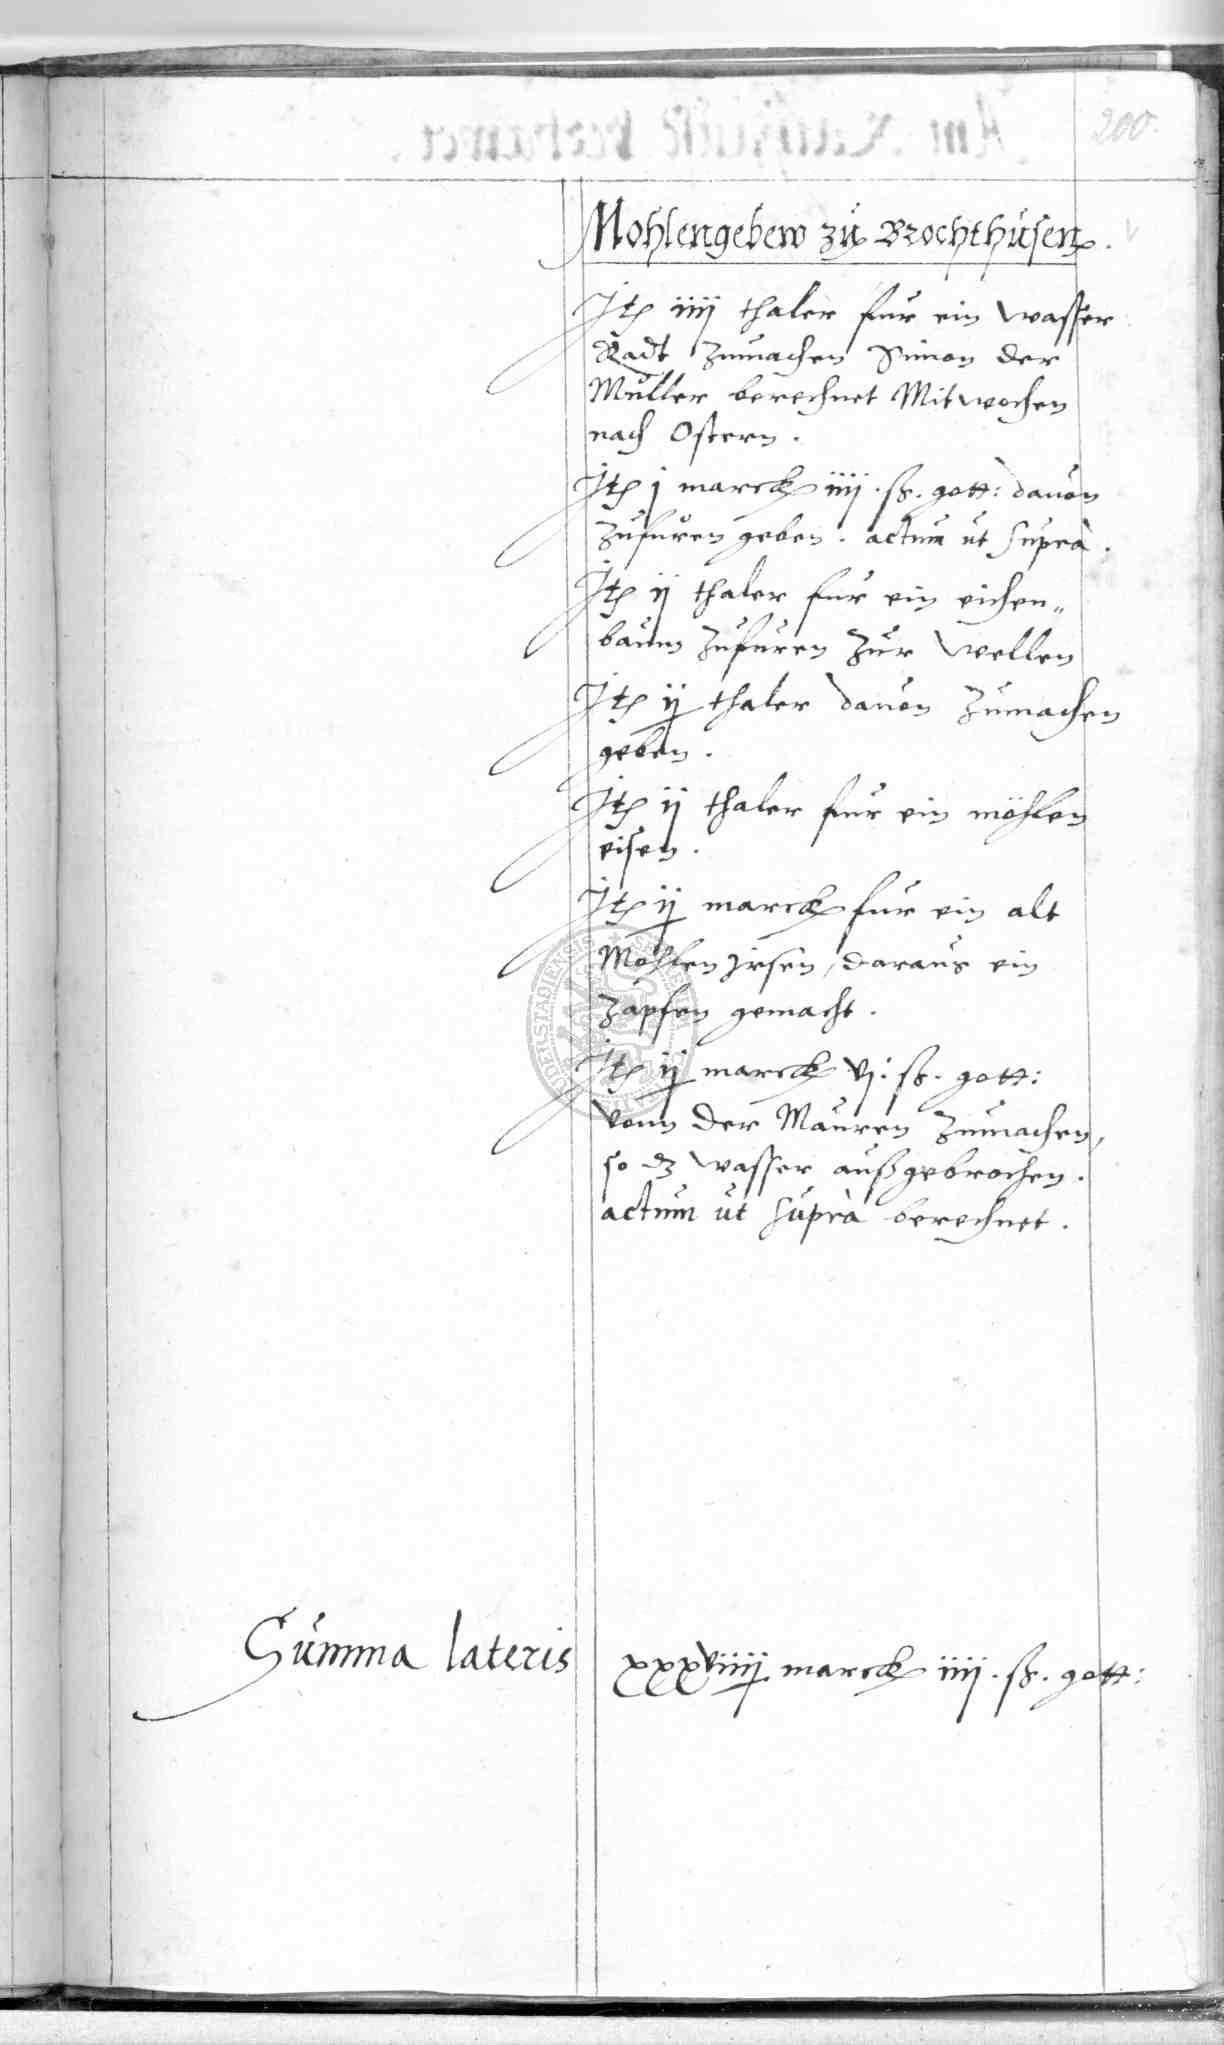 200.
Mohlengebew zu Brochthusen.
Itẽ iiij thaler fur ein wasser
Radt zumachen Simon der
Muller berechnet Mitwochen
nach Ostern.
Itẽ j marck iiij. ß. gott: dauon
zufuren geben. actum ut suprà.
Itẽ ij thaler fur ein eichen„
baum zufuren zur wellen
Itẽ ij thaler dauon zumachen
geben.
Itẽ ij thaler fur ein möhlen
eisen.
Itẽ ij marck fur ein alt
Mohlen, daraus ein
zapfen gemacht.
Itẽ ij marck vj. ß. gott:
vonn der Mauren zumachen,
so dz wasser außgebrochen.
actum ut suprà berechnet.
Summa lateris xxxviiij marck iiij. ß. gott: